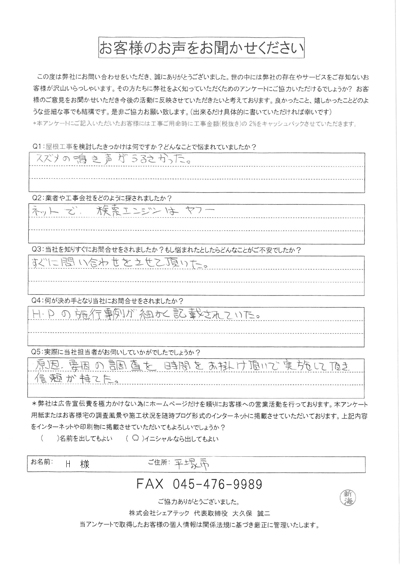 お客様のお声をお聞かせください
この度は弊社にお問い合わせをいただき、誠にありがとうございました。世の中には弊社の存在やサービスをご存知ないお
客様が沢山いらっしゃいます。その方たちに弊社をよく知っていただくためのアンケートにご協力いただけるでしょうか？ お客
様のご意見をお聞かせいただき今後の活動に反映させていただきたいと考えております。良かったこと、嬉しかったことどのよう
な些細な事でも結構です。是非ご協力お願い致します。（出来るだけ具体的に書いていただければ幸いです）
*本アンケートにご記入いただいたお客様には工事ご用命時に工事金額(税抜き)の2%をキャッシュバックさせていただきます。
Q1:屋根工事を検討したきっかけは何ですか？どんなことで悩まれていましたか？
スズメの鳴き声がうるさかった。
Q2:業者や工事会社をどのように探されましたか？
ネットで、検索エンジンはヤフー
Q3:当社を知りすぐにお問合せをされましたか？もし悩まれたとしたらどんなことがご不安でしたか？
すぐに問い合わせをさせて頂いた。
Q4:何が決め手となり当社にお問合せをされましたか？
H.Pの施行事例が細かく記載されていた。
Q5:実際に当社担当者がお伺いしていかがでしたでしょうか？
原因、要因の調査を時間をおかけ頂いて実施して頂き
信頼が持てた。
*弊社は広告宣伝費を極力かけない為にホームページだけを頼りにお客様への営業活動を行っております。本アンケート
用紙またはお客様宅の調査風景や施工状況を随時ブログ形式のインターネットに掲載させていただいております。上記内容
をインターネットや印刷物に掲載させていただいてもよろしいでしょうか？
( )名前を出してもよい (○)イニシャルなら出してもよい
お名前: H 様 ご住所: 平塚市
FAX 045-476-9989
新海
ご協力ありがとうございました。
株式会社シェアテック 代表取締役 大久保 誠二
当アンケートで取得したお客様の個人情報は関係法規に基づき厳正に管理いたします。